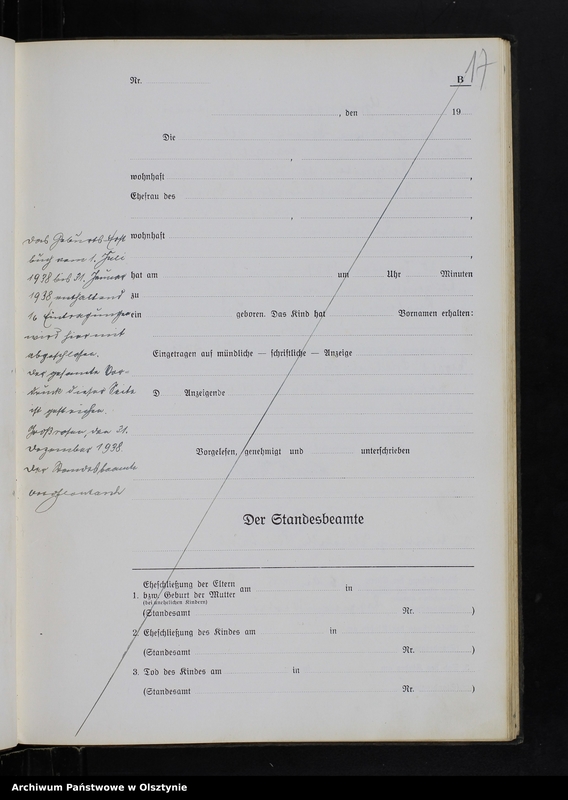 17
Nr.
B
, den 19
Die
,
wohnhaft ,
Ehefrau des
, ,
wohnhaft
,
hat am um Uhr Minuten
zu
ein geboren. Das Kind hat Vornamen erhalten:
Eingetragen auf mündliche — schriftliche — Anzeige
D Anzeigende
Vorgelesen, genehmigt und unterschrieben
Der Standesbeamte
1. Eheschließung der Eltern
bzw. Geburt der Mutter am in
(bei unehelichen Kindern)
(Standesamt Nr. )
2. Eheschließung des Kindes am in
(Standesamt Nr. )
3. Tod des Kindes am in
(Standesamt Nr. )
Das Geburts
buch vom 1. Juli
1938 bis 31.
1938, enthaltend
16 Eintragungen
wird hiermit
abgeschlossen.
Der gesamte Vor-
druck dieser Seite
ist gestrichen.
Großrosen, den 31.
Dezember 1938.
Der Standesbeamte
Archiwum Państwowe w Olsztynie